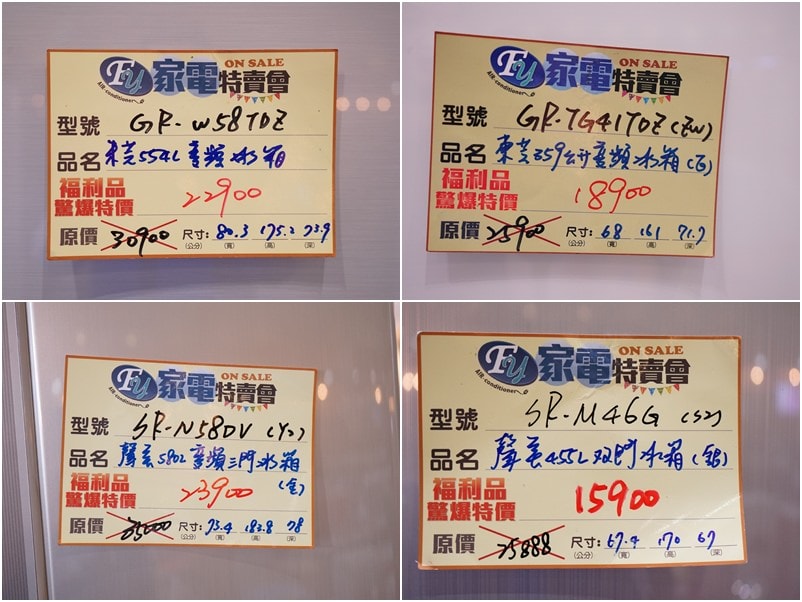 FU 家電特賣會 ON SALE
AIR-conditioner
型號 GR-W58TDZ
品名 東芝554L變頻冰箱
福利品
驚爆特價 22900
原價 30900 尺寸:(公分) 80.3(寬) 175.2(高) 73.9(深)
FU 家電特賣會 ON SALE
AIR-conditioner
型號 GR-TG41TDZ(ZW)
品名 東芝359公升變頻冰箱(白)
福利品
驚爆特價 18900
原價 25900 尺寸:(公分) 68(寬) 161(高) 71.7(深)
FU 家電特賣會 ON SALE
AIR-conditioner
型號 SR-N58DV(Y2)
品名 聲寶580L變頻三門冰箱(金)
福利品
驚爆特價 23900
原價 35000 尺寸:(公分) 73.4(寬) 183.8(高) 78(深)
FU 家電特賣會 ON SALE
AIR-conditioner
型號 SR-M46G(S2)
品名 聲寶455L双門冰箱(銀)
福利品
驚爆特價 15900
原價 25888 尺寸:(公分) 67.4(寬) 170(高) 67(深)